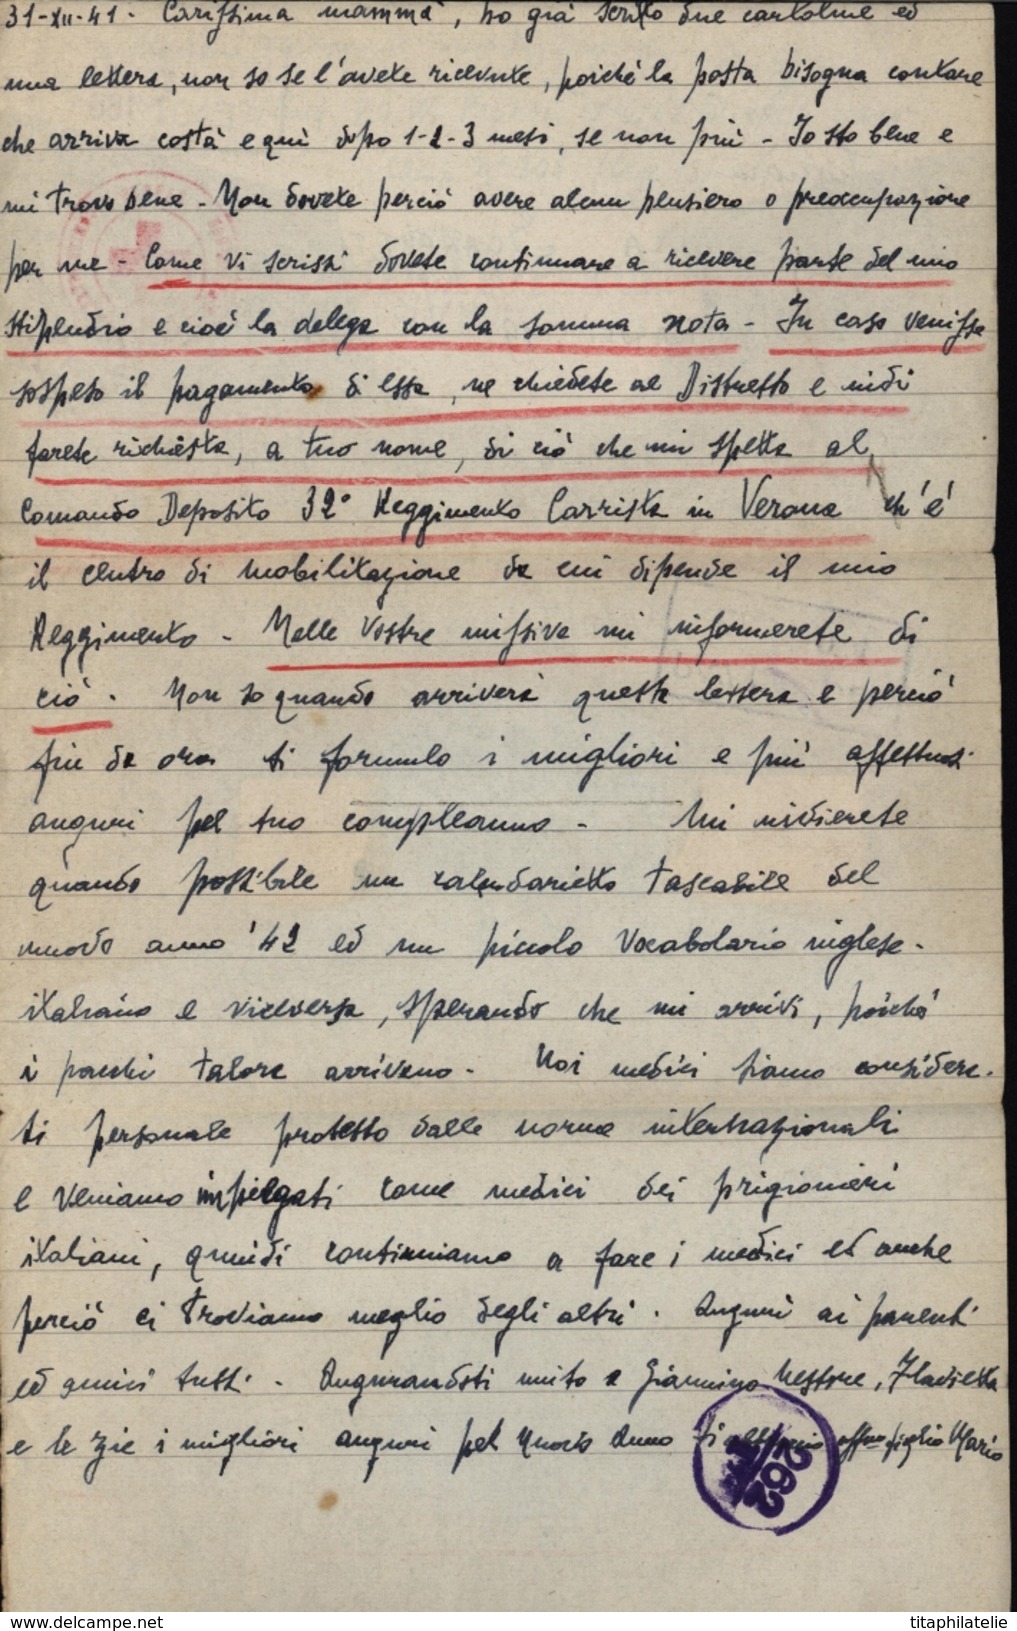 31-XII-41. Carissima mamma, ho già scritto due cartoline ed
una lettera, non so se l'avete ricevute, poiché la posta bisogna contare
che arriva costà e qui dopo 1-2-3 mesi, se non più - Io sto bene e
mi trovo bene - Non dovete perciò avere alcun pensiero o preoccupazione
per me - Come vi scrissi dovete continuare a ricevere parte del mio
stipendio e cioè la delega con la somma nota - In caso venisse
sospeso il pagamento di essa, ne chiedete al Distretto e indi
farete richiesta, a tuo nome, di ciò che mi spetta al
Comando Deposito 32° Reggimento Carrista in Verona ch'è
il centro di mobilitazione da cui dipende il mio
Reggimento - Nelle vostre missive mi informerete di
ciò. Non so quando arriverà questa lettera e perciò
fin da ora ti formulo i migliori e più affettuosi
auguri pel tuo compleanno - Mi invierete
quando possibile un calendarietto tascabile del
nuovo anno '42 ed un piccolo vocabolario inglese-
italiano e viceversa, sperando che mi arrivi, poiché
i pacchi talora arrivano. Noi medici siamo considera-
ti personale protetto dalle norme internazionali
e veniamo impiegati come medici dei prigionieri
italiani, quindi continuiamo a fare i medici ed anche
perciò ci troviamo meglio degli altri. Auguri ai parenti
ed amici tutti. Augurandoti unito a Giannino Nestore, Flavietta
e le zie i migliori auguri pel Nuovo Anno ti abbraccio aff.mo figlio Mario
262
delcampe.net
titaphilatelie